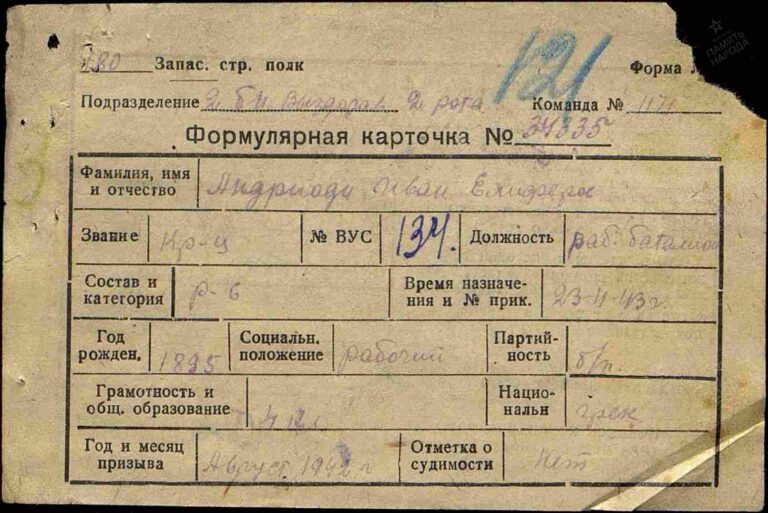 180 Запас. стр. полк
Форма
Подразделение 2 бн выздорав 2 рота Команда №
121
Формулярная карточка № 34335
Фамилия, имя и отчество Андриади Иван
Звание Кр-ц № ВУС 134. Должность раб. батальон
Состав и категория р-в Время назначения и № прик. 23-4-43 г.
Год рожден. 1895 Социальн. положение рабочий Партийность б/п.
Грамотность и общ. образование 4 кл. Национальн грек
Год и месяц призыва Август 1942 г Отметка о судимости нет
ПАМЯТЬ НАРОДА